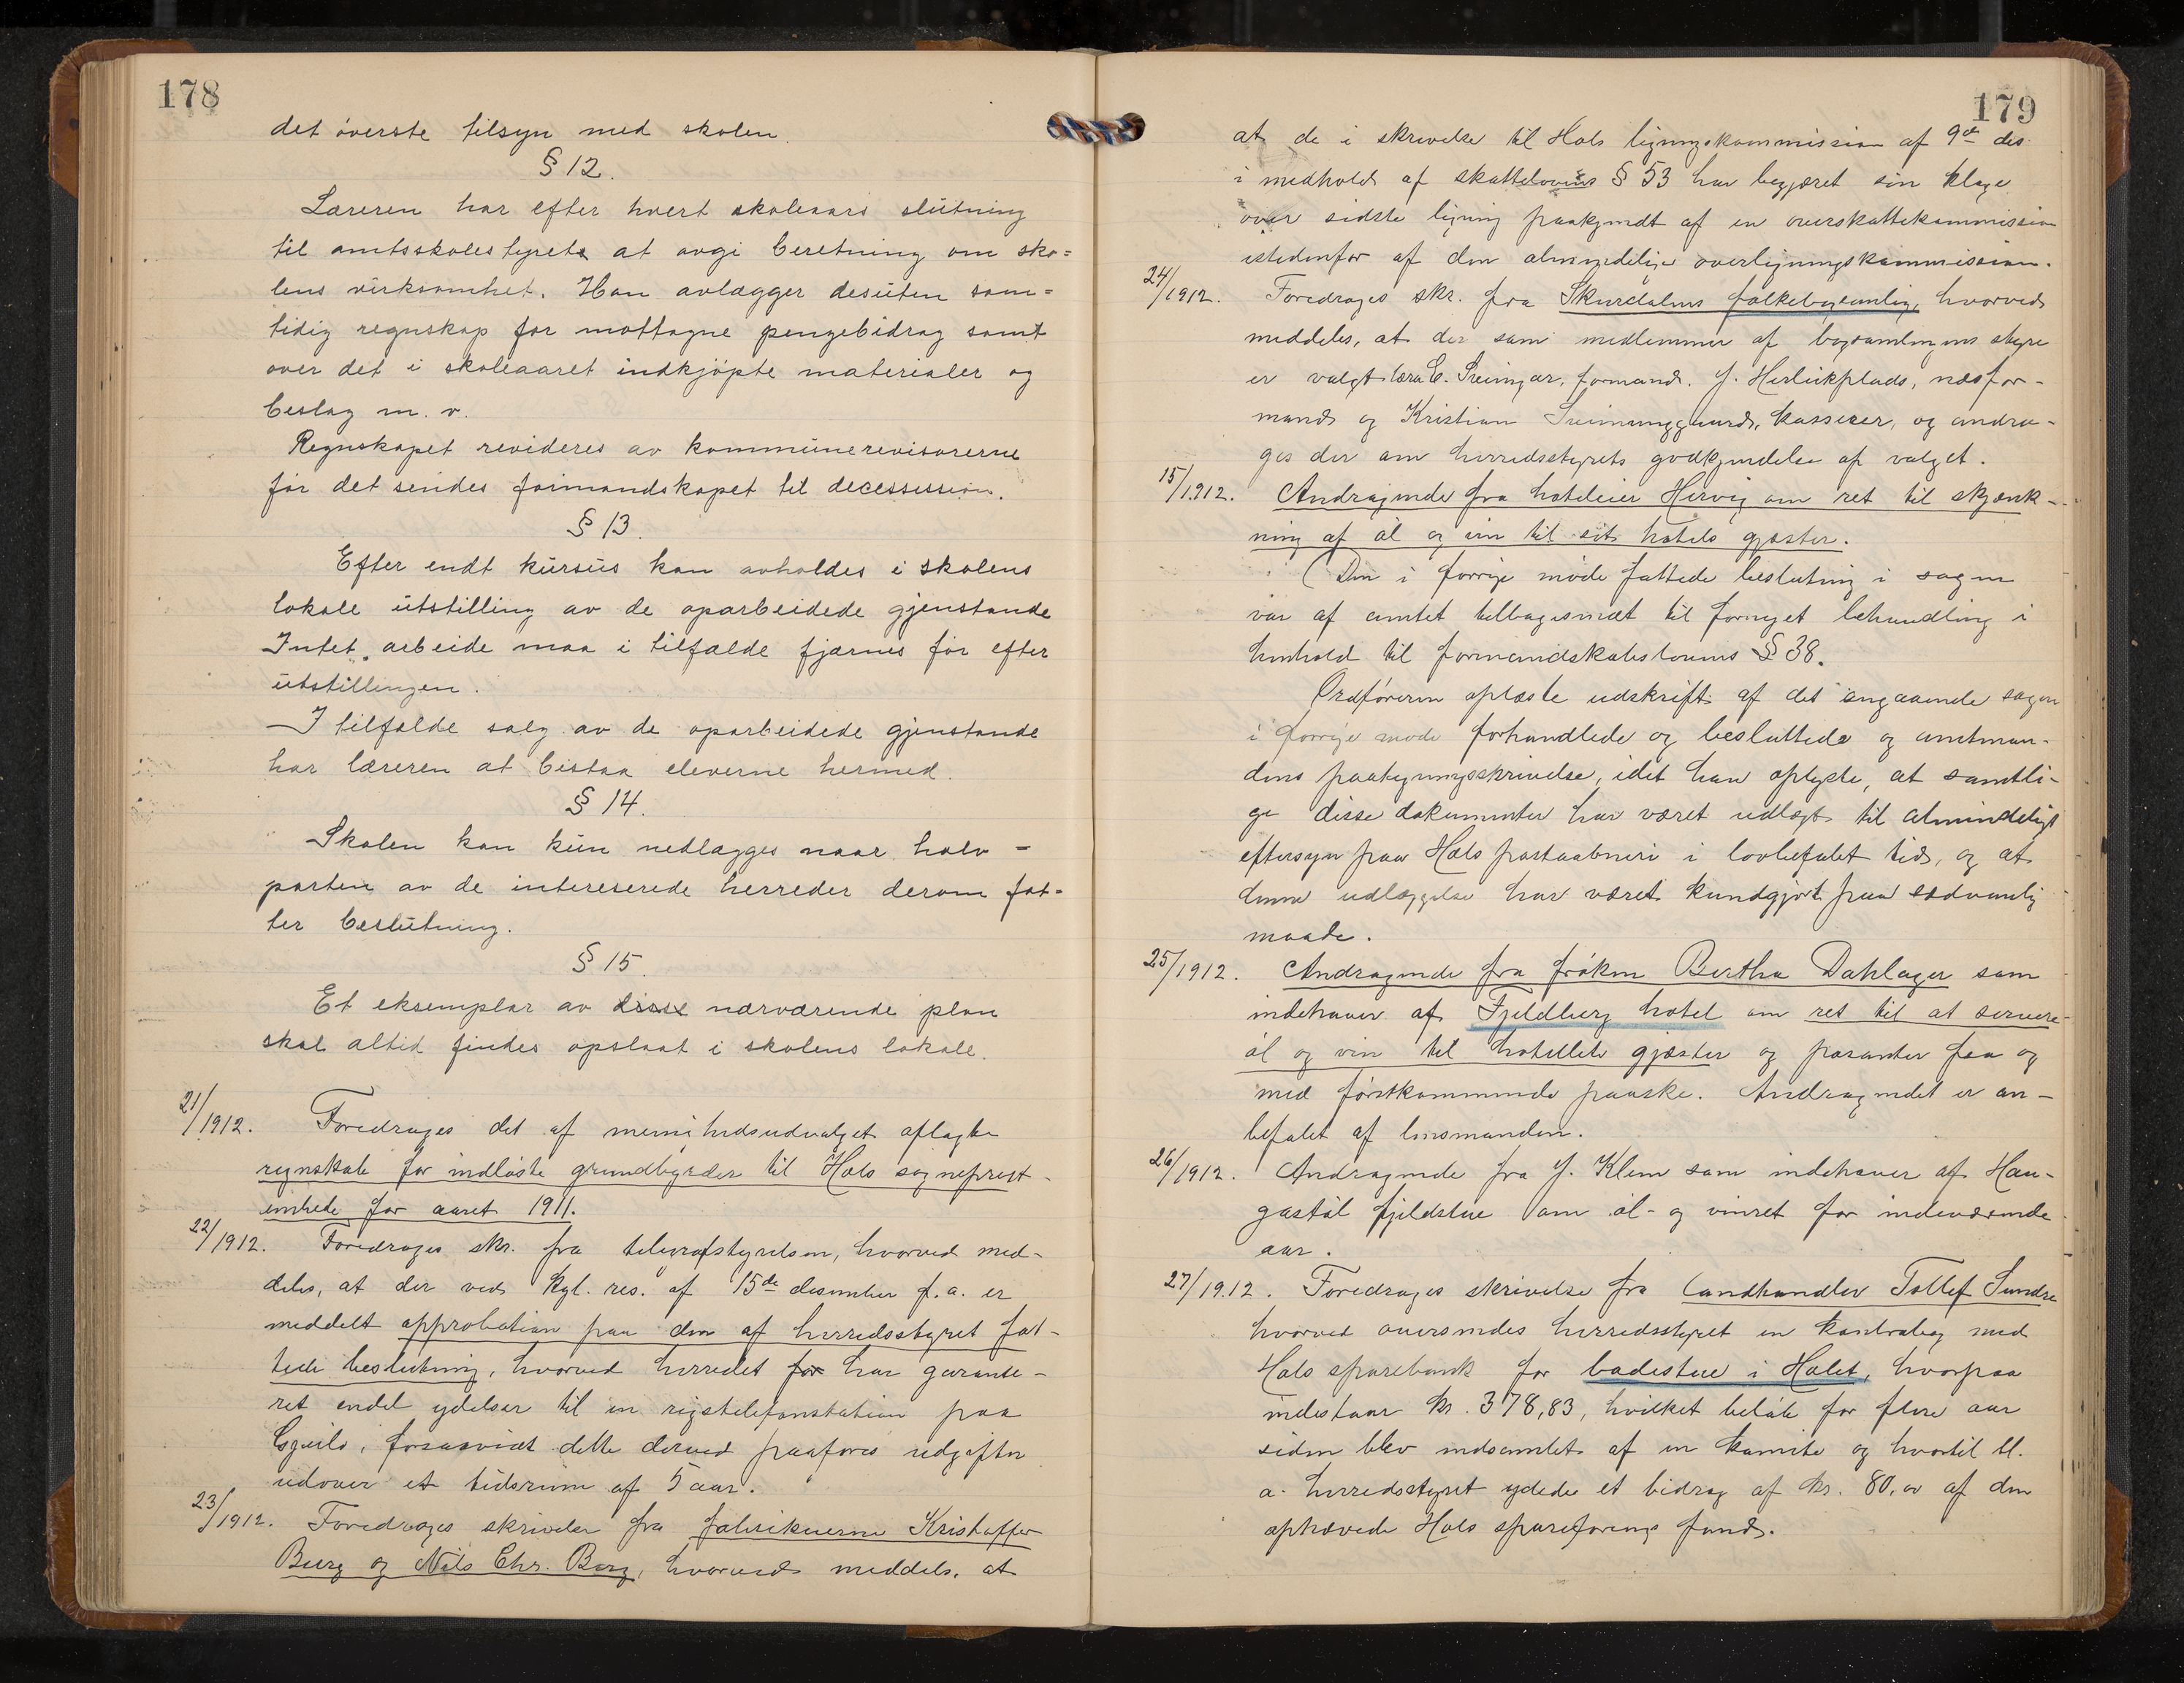 178
det överste tilsyn med skolen.
§ 12.
Læreren har efter hvert skoleaars slutning
til amtsskolestyret at avgi beretning om sko=
lens virksomhet. Han avlægger desuten sam=
tidig regnskap for mottagne pengebidrag samt
over det i skoleaaret indkjöpte materialer og
beslag m. v.
Regnskapet revideres av kommunerevisorerne
för det sendes formandskapet til decessission.
§ 13.
Efter endt kursus kan avholdes i skolens
lokale utstilling av de oparbeidede gjenstande
Intet arbeide maa i tilfælde fjernes för efter
utstillingen.
I tilfælde salg av de oparbeidede gjenstande
har læreren at bistaa eleverne hermed.
§ 14.
Skolen kan kun nedlægges naar halv-
parten av de intereserede herreder derom fat=
ter beslutning.
§ 15.
Et eksemplar av disse nærværende plan
skal altid findes opslaat i skolens lokale.
21/1912. Foredrages det af menighedsudvalget aflagte
regnskab for indløste grundbyrder til Hols sogneprest-
embede for aaret 1911.
22/1912. Foredrages skr. fra telegrafstyrelsen, hvorved med-
deles, at der ved kgl. res. af 15de desember f.a. er
meddelt approbation paa den af herredsstyret fat-
tede beslutning, hvorved herredet for har garante-
ret endel ydelser til en rigstelefonstation paa
forsaavidt dette derved paaføres udgifter
udover et tidsrum af 5 aar.
23/1912. Foredrages skrivelse fra fabrikeierne Kristoffer
Berg og Nils Chr. Berg, hvorved meddeles, at
179
at de i skrivelse til Hols ligningskommission af 9de ds
i medhold af skattelovens § 53 har begjæret sin klage
over sidste ligning paakjendt af en overskattekommission
istedenfor af den almindelige overligningskommission.
24/1912. Foredrages skr. fra Skurdalens folkebogsamling, hvorved
meddeles, at der som medlemmer af bogsamlingens styre
er valgt lærer E. formand. J. næsfor-
mand og Kristian kasserer, og andra-
ges der om herredsstyrets godkjendelse af valget.
15/1912. Andragende fra hoteleier Hervig om ret til skjænk-
ning af öl og vin til sit hotels gjæster.
(Den i forrige møde fattede beslutning i sagen
var af amtet tilbagesendt til fornyet behandling i
henhold til formandskabslovens § 38.
Ordføreren oplæste udskrift af det angaaende sagen
i forrige møde forhandlede og besluttede og amtman-
dens paategningsskrivelse, idet han oplyste, at samtli-
ge disse dokumenter har været udlagt til almindeligt
eftersyn paa Hols postaabneri i lovbefalet tid, og at
denne udlæggelse har været kundgjort paa sædvanlig
maade.
25/1912. Andragende fra frøken Bertha Dahlager som
indehaver af Fjeldberg hotel om ret til at servere
öl og vin til hotellets gjæster og passanter fra og
med førstkommende paaske. Andragendet er an-
befalet af lensmanden.
26/1912. Andragende fra J. Klem som indehaver af Hau-
gastøl fjeldstue om öl- og vinret for indeværende
aar.
27/1912. Foredrages skrivelse fra landhandler Tollef Sundre
hvorved oversendes herredsstyret en kontrabog med
Hols sparebank for badestue i Holet, hvorpaa
indestaar kr. 378,83, hvilket beløb for flere aar
siden blev indsamlet af en komite og hvortil bl.
a. herredsstyret ydede et bidrag af kr. 80,00 af den
ophævede Hols spareforenings fond.